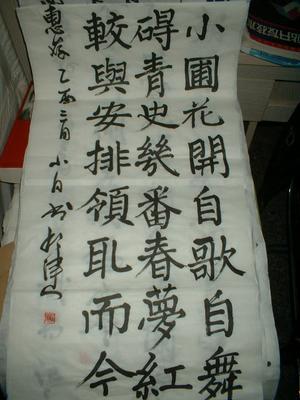 小圃花開自歌自舞
碍青史幾番春夢紅
較與安排領耴而今
惠 乙酉二月 小白书